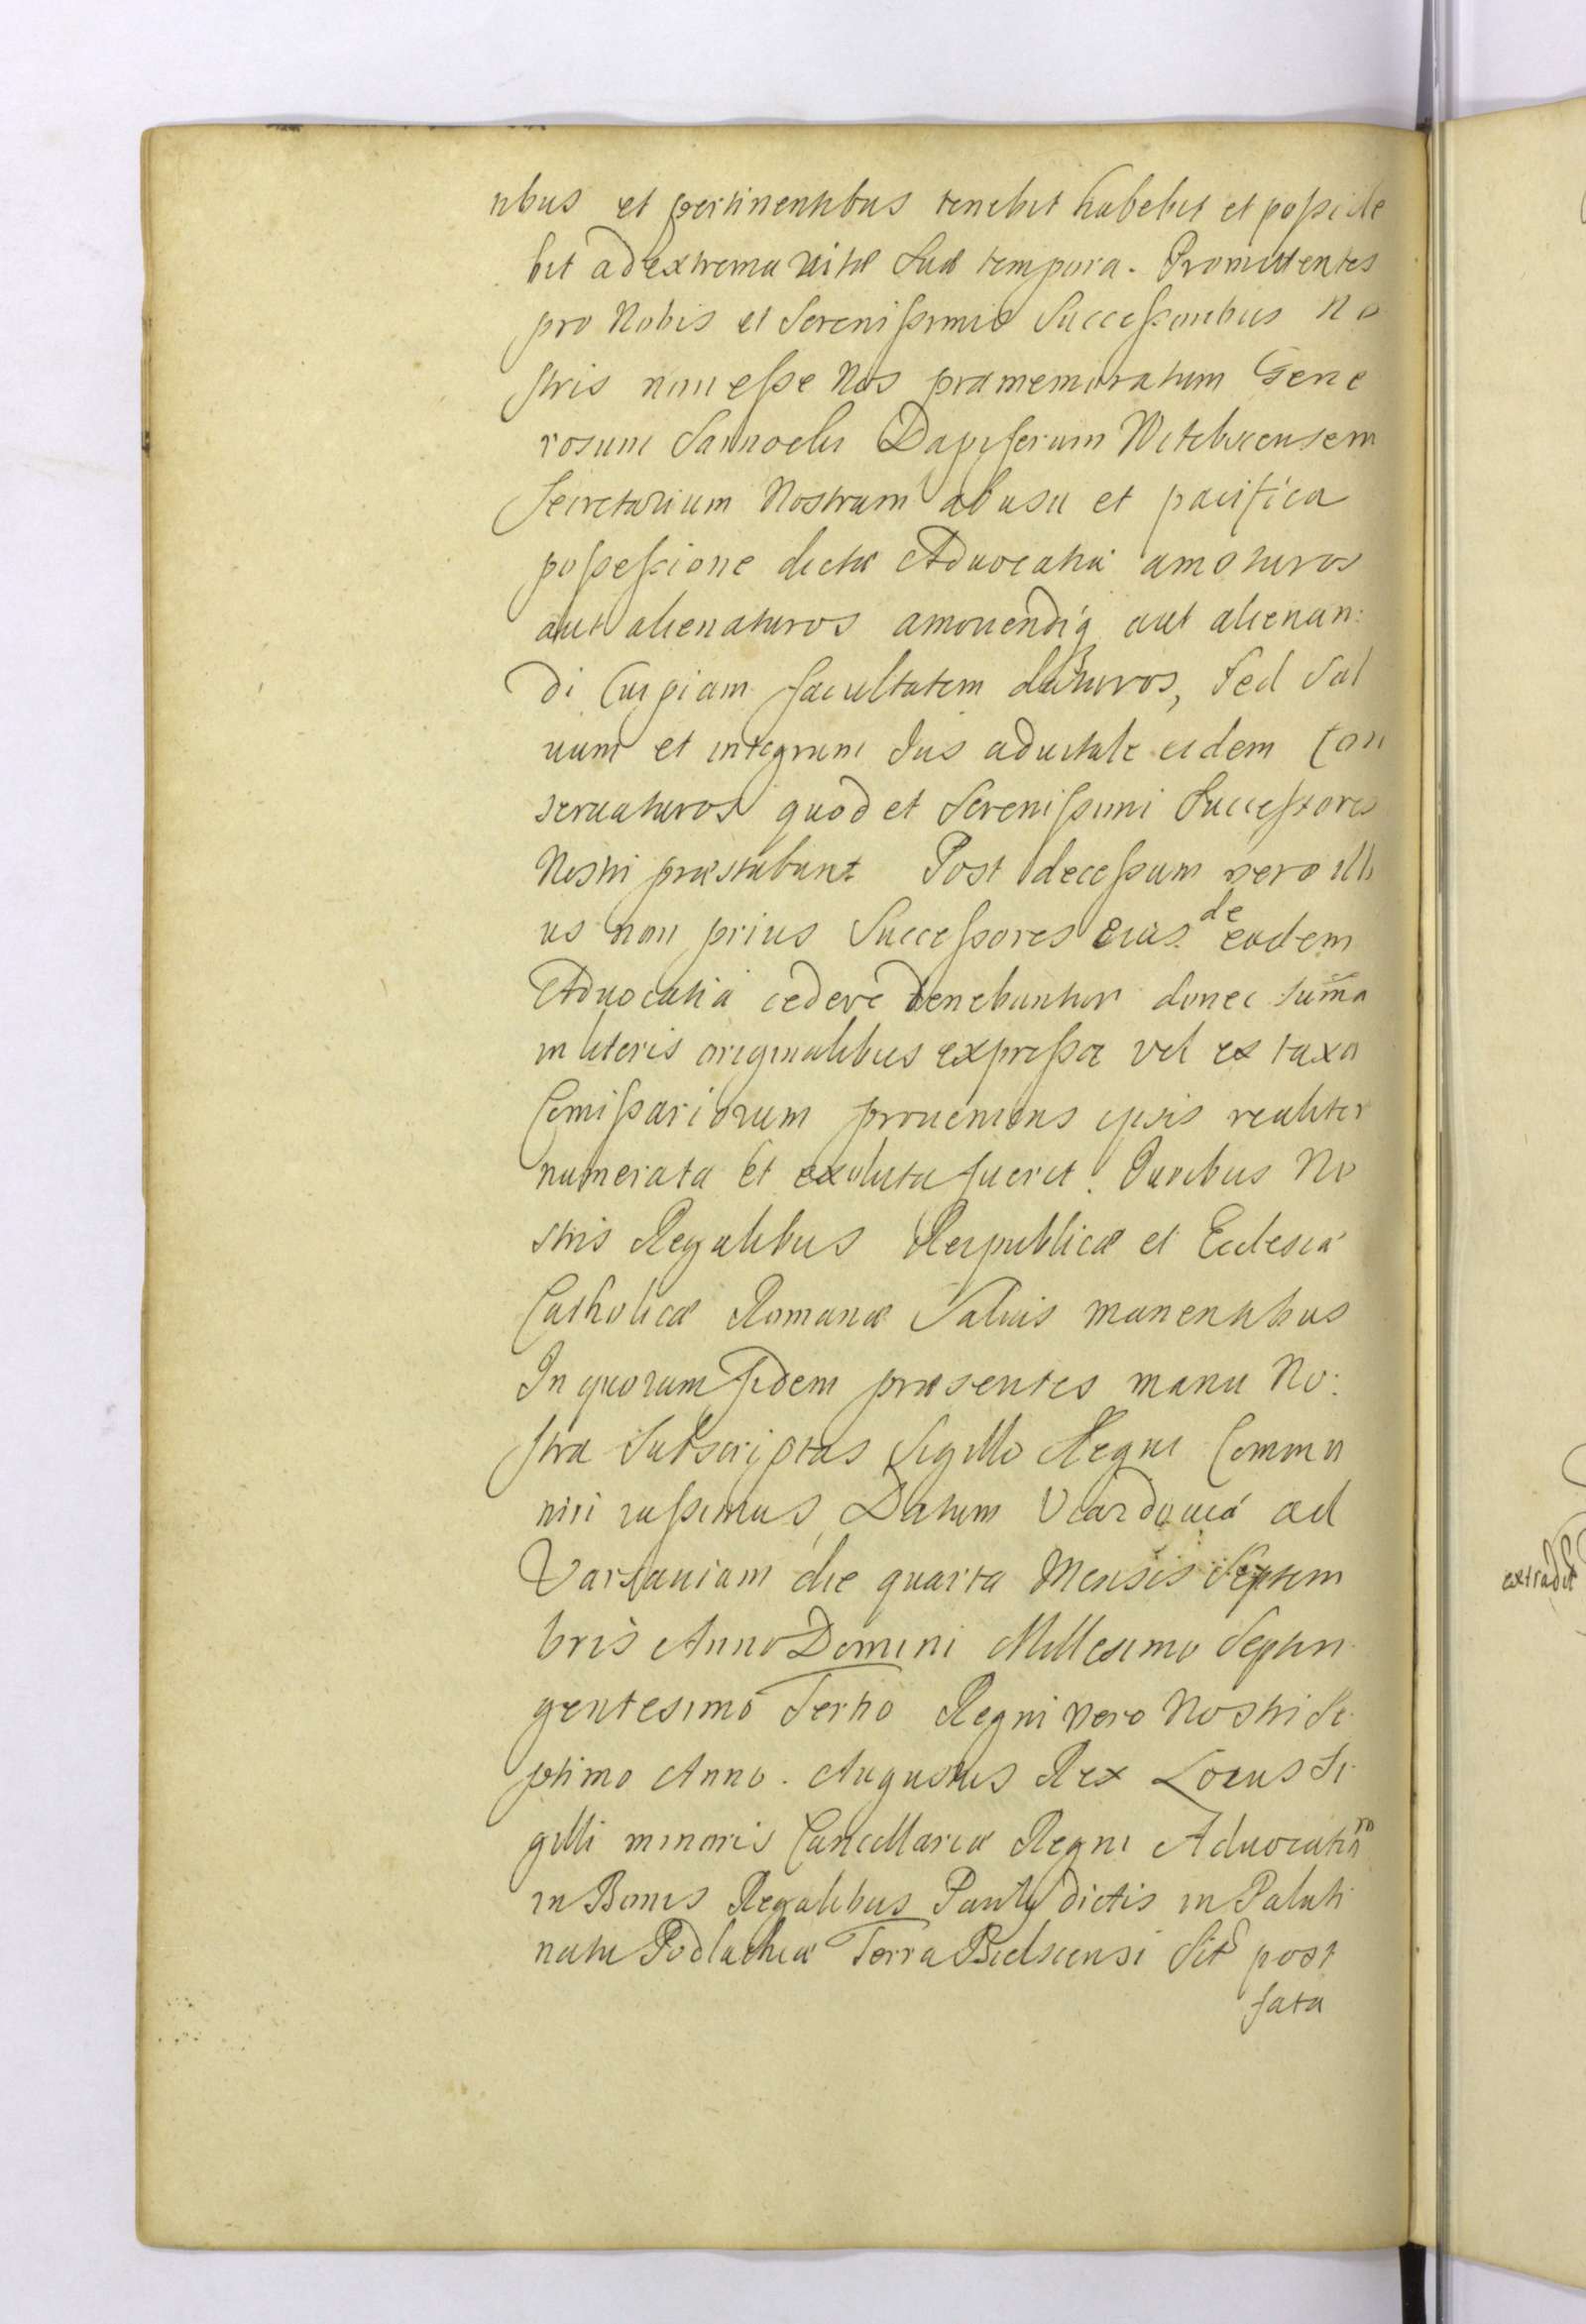 ribus et pertinentibus tenebit habebit et posside
bit ad extrema vitæ suæ tempora. Promittentes
pro Nobis et Serenissimis Successoribus No
stris non esse Nos præmemoratum Gene
rosum Sannoelu Dapiferum Witebscensem
Secretarium Nostrum ab usu et pacifica
possessione dictæ Aduocatiæ amoturos
aut alienaturos amouendiq aut alienan:
di Cuipiam facultatem daturos, sed Sal
uum et integrum Jus aduitale eidem Con
seruaturos quod et Serenissimi Successores
Nostri præstabunt Post decessum vero illi
us non prius Successores eius de eadem
Aduocatia cedere tenebuntur donec sum̃a
in literis originalibus expressa vel ex taxa
Comissariorum proueniens ipsis realiter
numerata et exoluta fuerit. Juribus No
stris Regalibus Reipublicæ et Ecclesiæ
Catholicæ Romanæ Saluis manentibus
In quorum fidem præsentes manu No:
stra Subscriptas Sigillo Regni Commu
niri iussimus, Datum Viazdouiæ ad
Varsauiam die quarta Mensis Septem
bris Anno Domini Millesimo Septin
gentesimo Tertio Regni vero Nostri Se
ptimo Anno. Augustus Rex Locus Si
gilli minoris Cancellariæ Regni Aduocatiam
in Bonis Regalibus Panty dictis in Palati
natu Podlachiæ Terra Bielscensi Sit post
fata
extradit